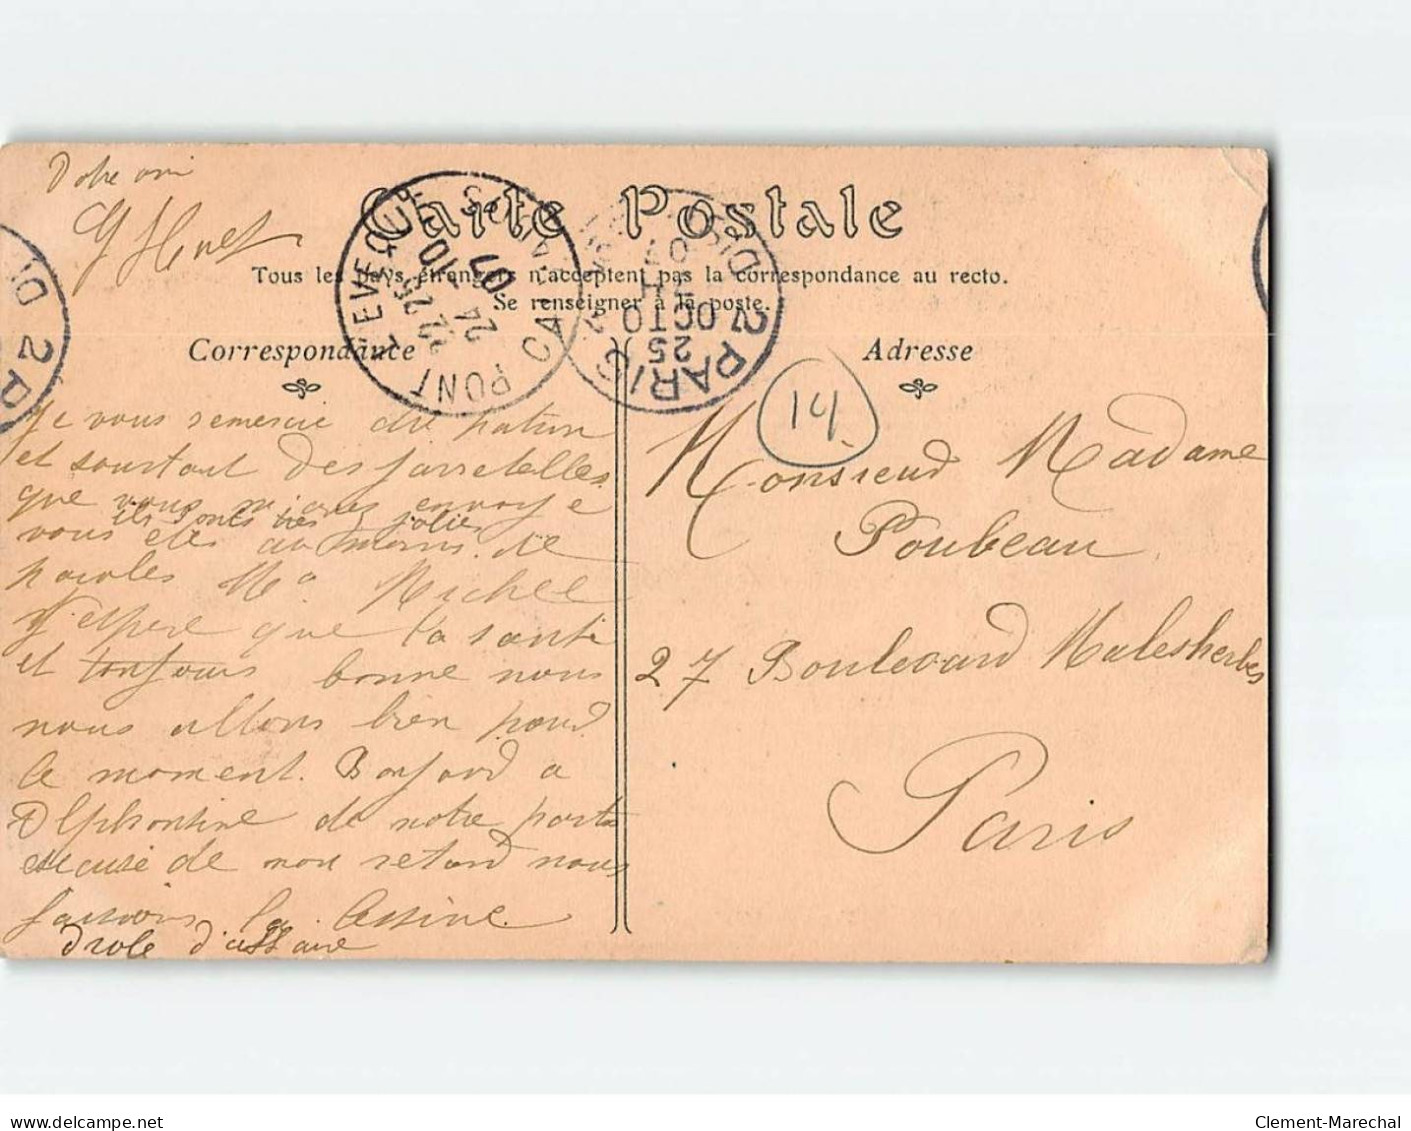 Votre ami
G Huet
Carte Postale
Tous les pays étrangers n'acceptent pas la correspondance au recto.
Se renseigner à la poste.
PONT L'EVEQUE CALVADOS
22 25
24 -10
07
PARIS DIS
25
OCTO
07
DI 2 P
Correspondance
Adresse
14.
Je vous remercie du
et sourtout des jarretelles
que vous m'avez envoye
ils sonts tres jolies
vous etes au moins de
paroles Me Michel
J'espere que la santé
et toujours bonne nous
nous allons bien pour
le moment. Bonjour a
Alphontine de notre part
excuse de mon retard nous
faisions la
drole d'affaire
Monsieur Madame
Poubeau
27 Boulevard Malesherbes
Paris
www.delcampe.net
Clement-Marechal